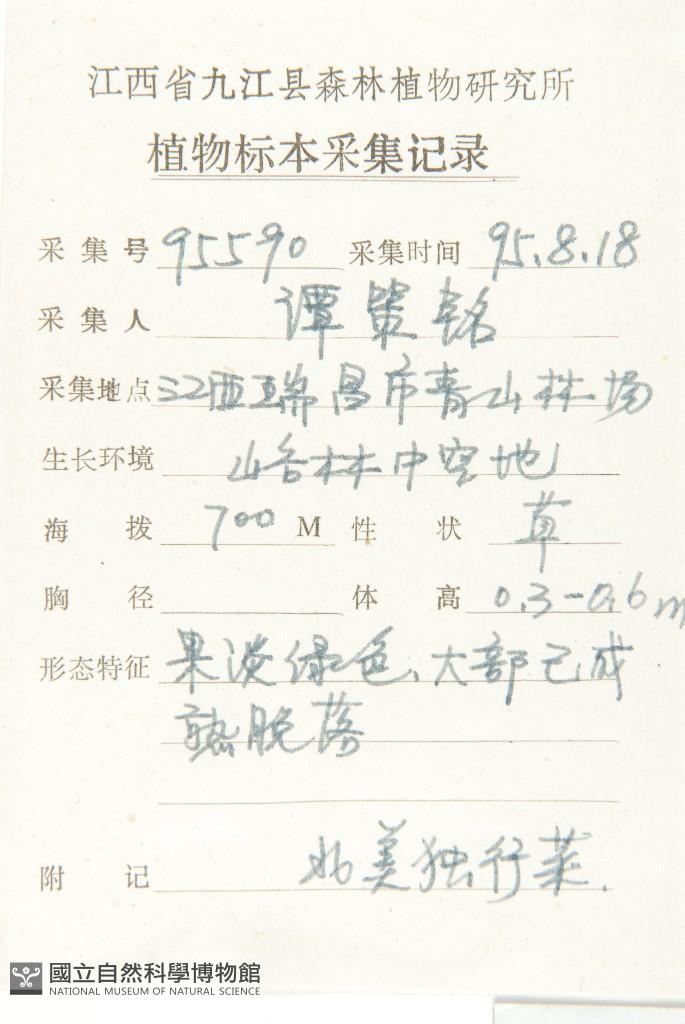 江西省九江县森林植物研究所
植物标本采集记录
采集号 95590 采集时间 95.8.18
采集人 谭策铭
采集地点 江西瑞昌市青山林场
生长环境 山谷林中空地
海拨 700 M 性状 草
胸径 体高 0.3-0.6m
形态特征 果淡绿色、大部已成
熟脱落
附记 北美独行菜.
國立自然科學博物館
NATIONAL MUSEUM OF NATURAL SCIENCE